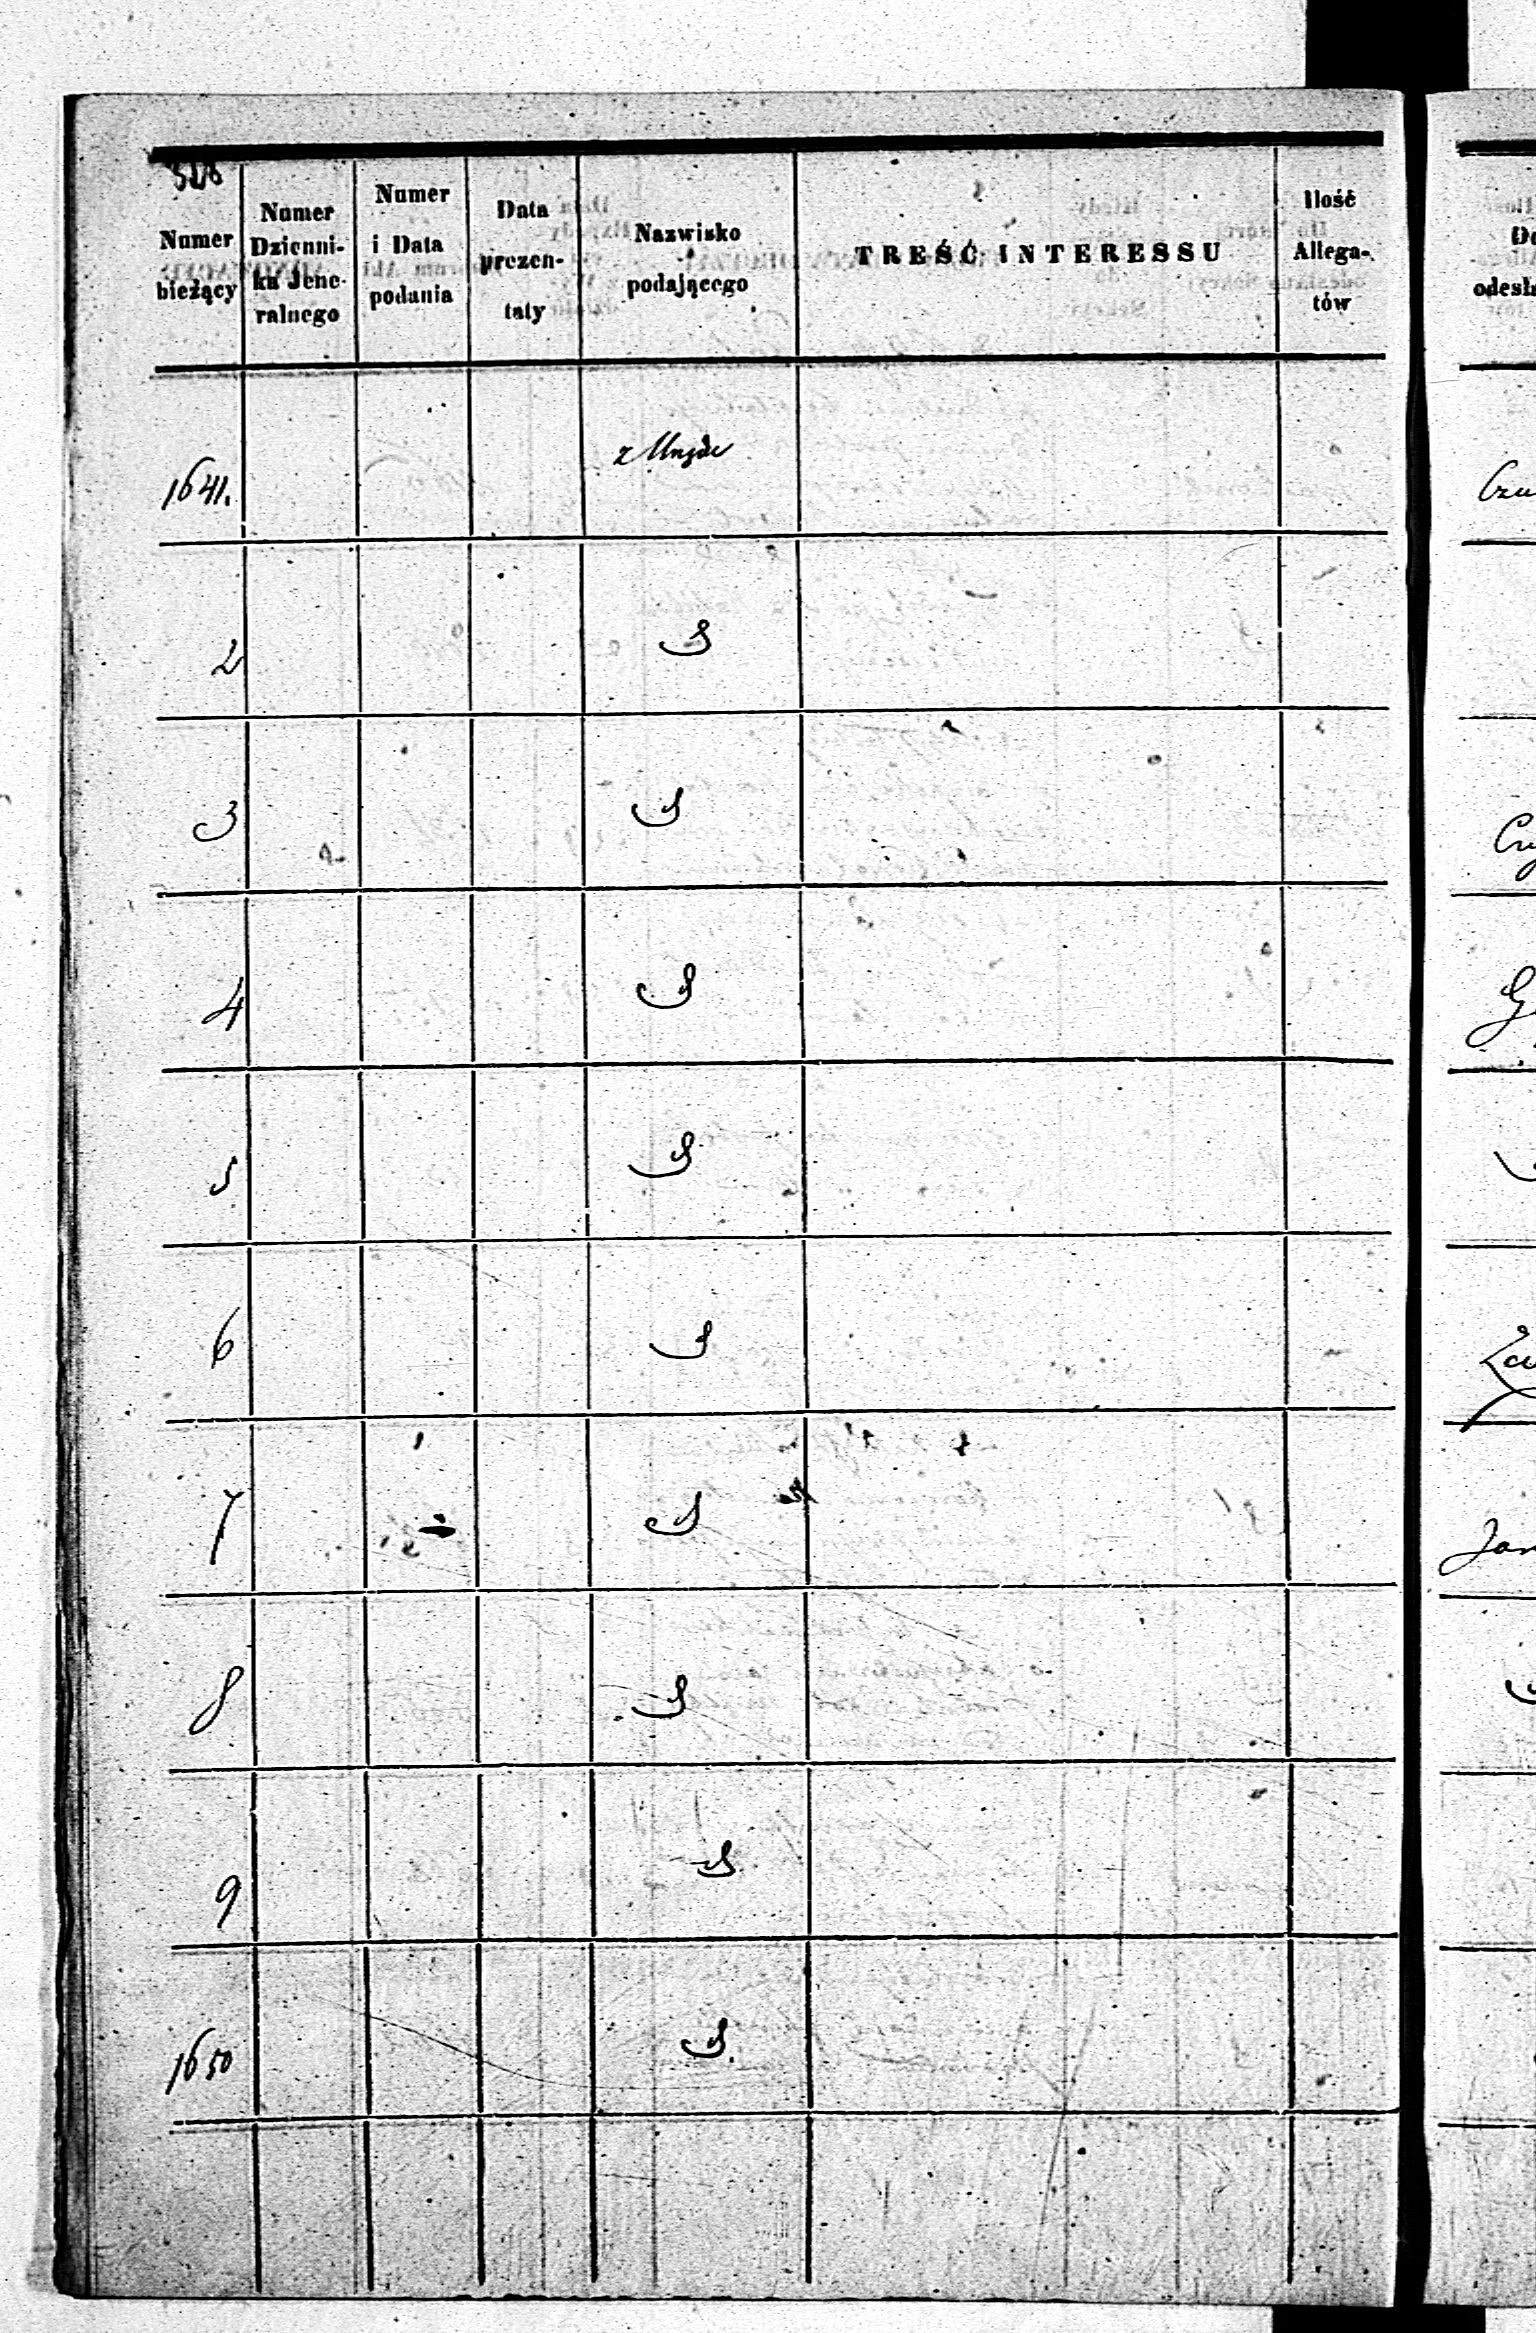 Numer
bieżący
Numer
Dzienni-
ka Jene-
ralnego
Numer
i Data
podania
Data
prezen-
taty
Nazwisko
podającego
TREŚĆ INTERESSU
Ilość
Allega-
tów
1641.
z Urzędu
2
3
4
5
6
7
8
9
1650